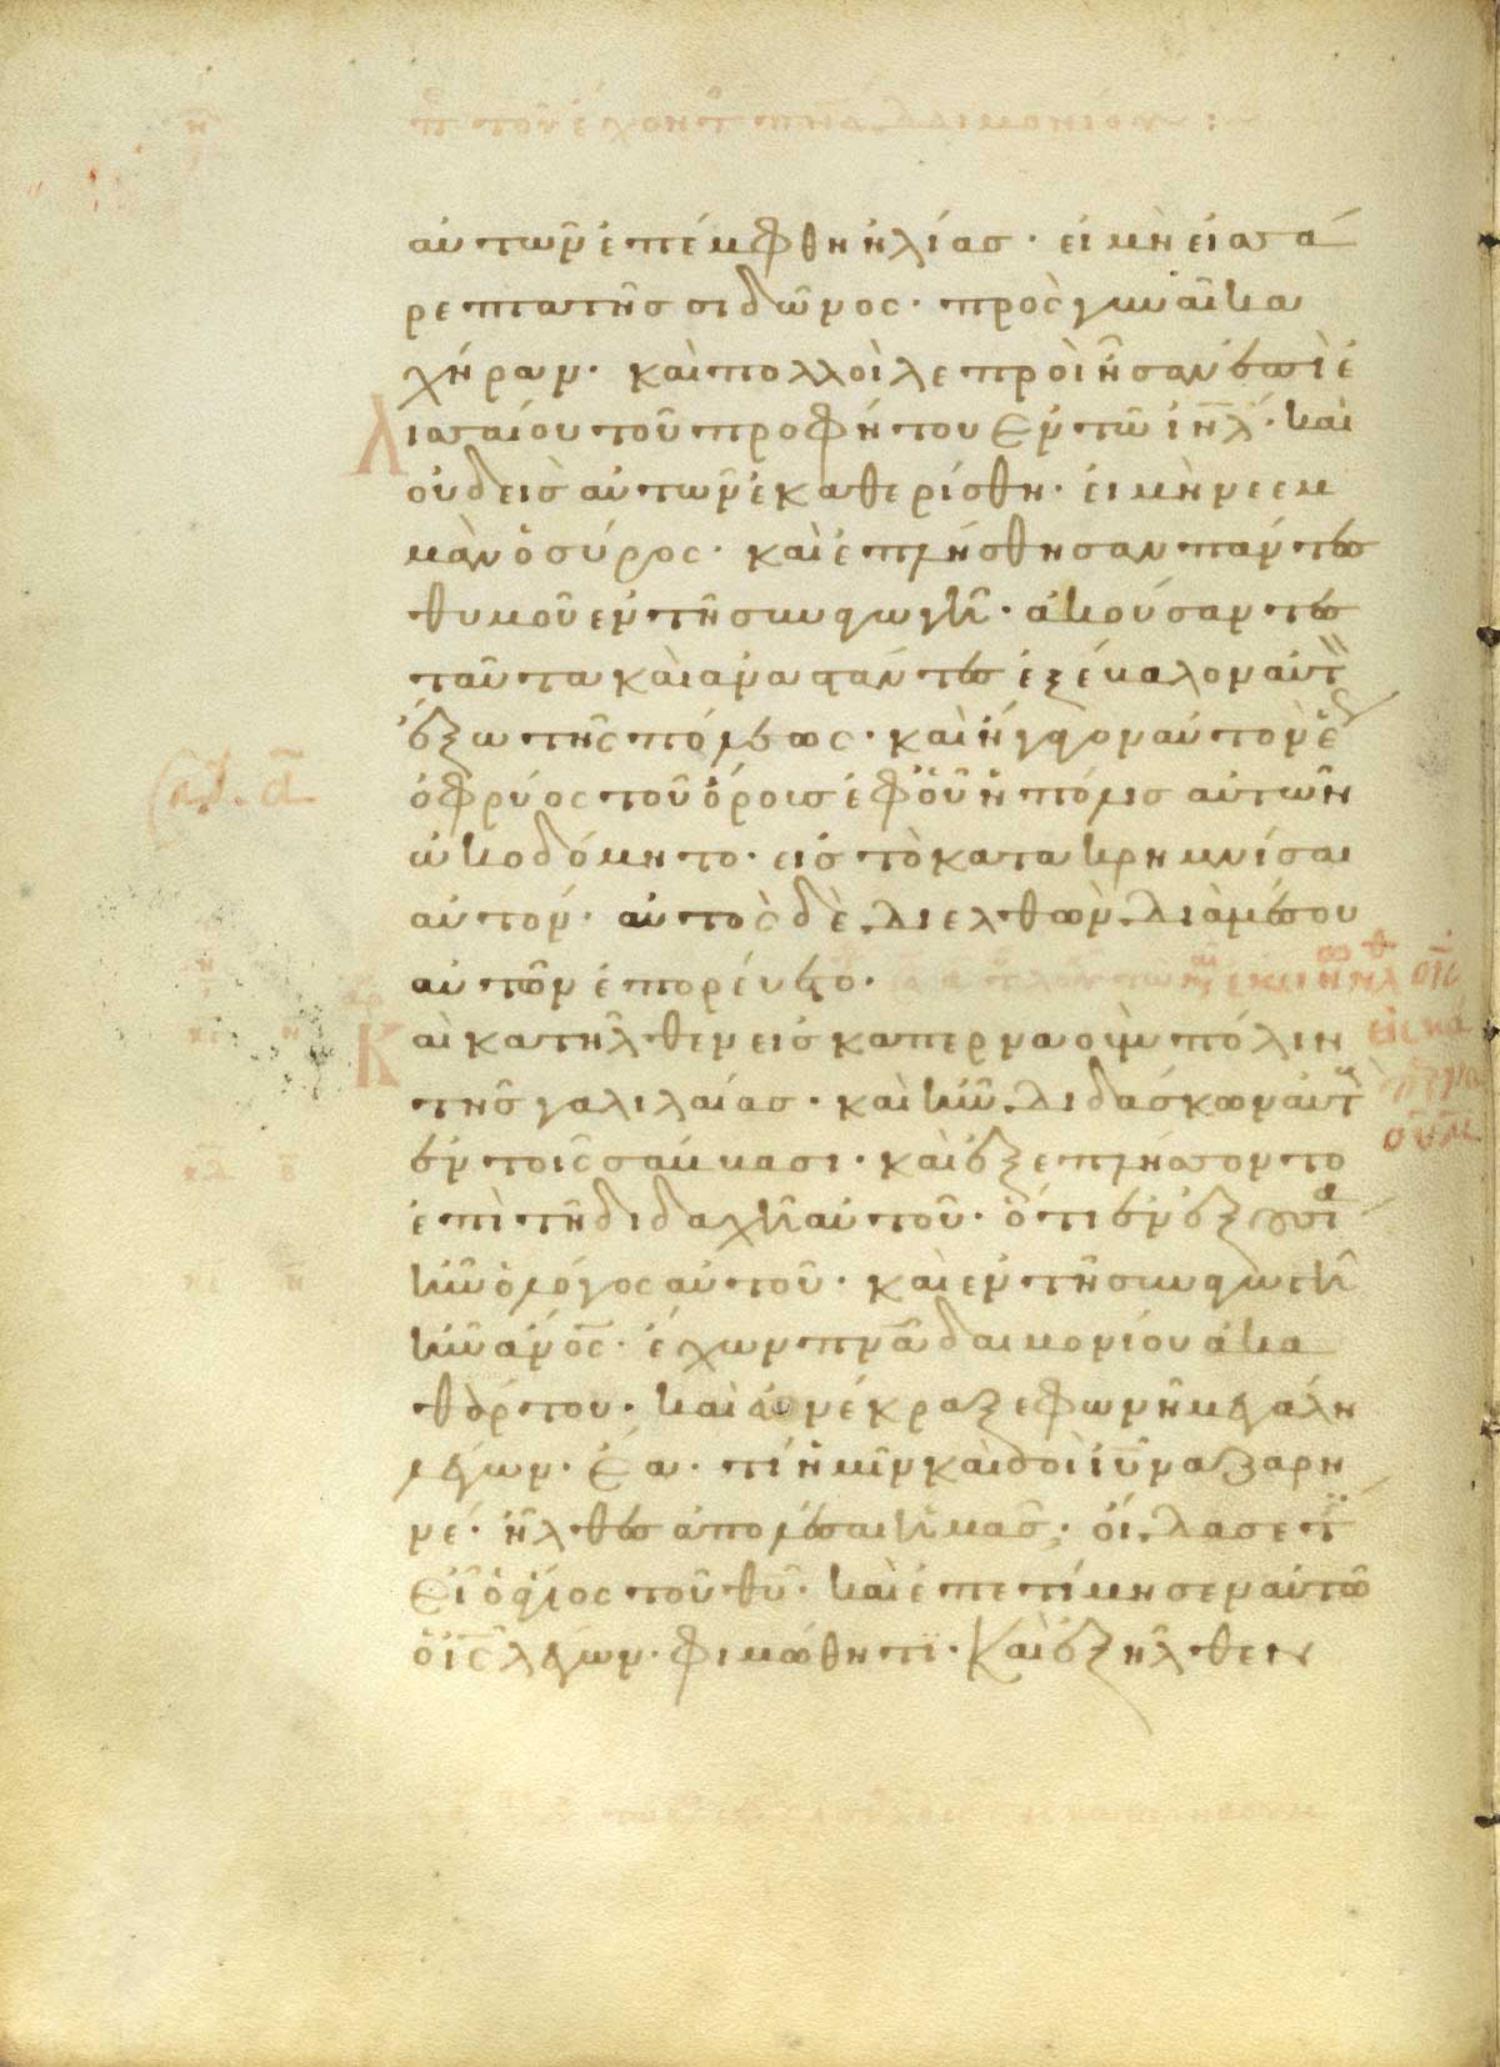 αὐτῶν ἐπέμφθη ἠλίας · εἰ μὴ εἰς σά
ρεπτα τῆς σιδῶνος · πρὸς γυναῖκα
χήραν · καὶ πολλοὶ λεπροὶ ἦσαν ἐπὶ ἐ
λισσαίου τοῦ προφήτου ἐν τῶ ἰηλ · καὶ
οὐδεὶς αὐτῶν ἐκαθερίσθη · εἰ μὴ νεεμ
μὰν ὁ σύρος · καὶ ἐπλήσθησαν πάντες
θυμοῦ ἐν τῆ συναγωγῆ · ἀκούσαντες
ταῦτα καὶ ἀναστάντες ἐξέβαλον αὐτ
ἔξω τῆς πόλεως · καὶ ἤγαγον αὐτὸν ἕς
ὀφρύος τοῦ ὄρους ἐφ οὗ ἡ πόλις αὐτῶν
ὠκοδόμητο · εἰς τὸ κατακρημνίσαι
αὐτόν · αὐτὸς δὲ διελθὼν διὰ μέσου
αὐτῶν ἐπορεύετο ·
Καὶ κατῆλθεν εἰς καπερναοὺμ πόλιν
τῆς γαλιλαίας · καὶ ἦν διδάσκων αὐτ
ἐν τοῖς σάββασι · καὶ ἐξεπλήσσοντο
ἐπὶ τῆ διδαχῆ αὐτοῦ · ὅτι ἐν ἐξουσία
ἦν ὁ λόγος αὐτοῦ · καὶ ἐν τῆ συναγωγῆ
ἦν ἀνος · ἔχων πνα δαιμονίου ἀκα
θάρτου · καὶ ἀνέκραξε φωνῆ μεγάλη
λέγων · ἔα · τί ἡμῖν καὶ σοὶ ιυ ναζαρη
νέ · ἦλθες ἀπολέσαι ἡμᾶς · οἶδα σε τί
εἶ ὁ ἅγιος τοῦ θυ · καὶ ἐπετίμησεν αὐτῶ
ὁ ις λέγων · φιμώθητι · Καὶ ἔξηλθεν